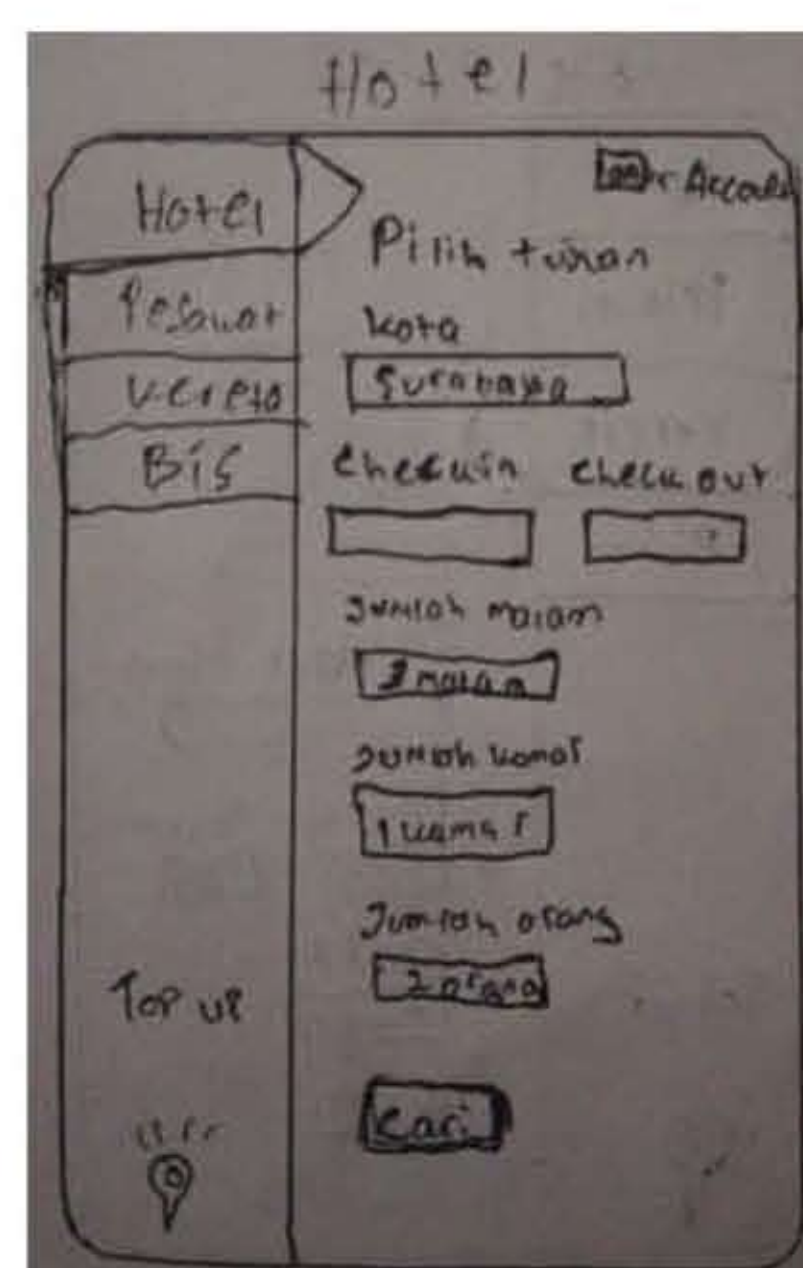 Hotel
Hotel
Pesawat
Kereta
Bis
Top up
Pilih tujuan
Kota
Surabaya
Checkin Check out
Jumlah malam
malam
Jumlah kamar
1 kamar
Jumlah orang
2 orang
Cari